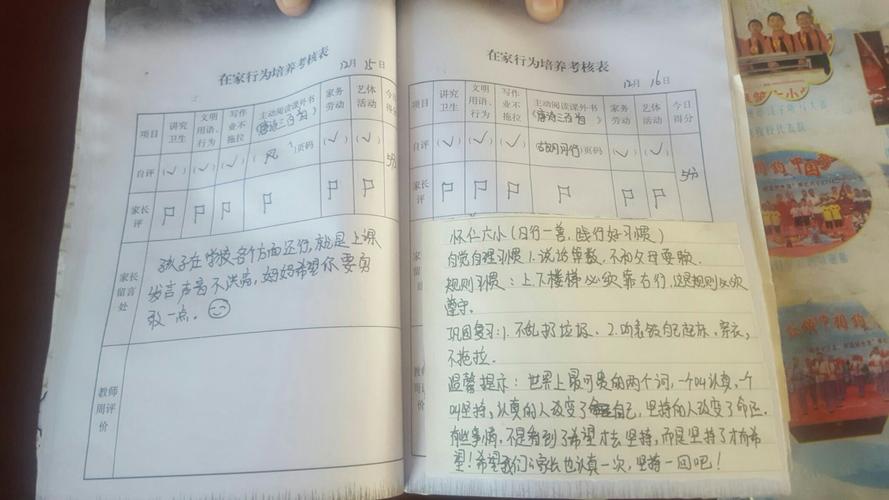 在家行为培养考核表
12月15日
项目 讲究卫生 文明用语、行为 写作业不拖拉 主动阅读课外书(唐诗三百首) 家务劳动 艺体活动 今日得分
自评 (√) (√) (√) (风)页码 (√) (√) 5分
家长评
家长留言处
孩子在学校各个方面还行,就是上课
发言声音不洪亮,妈妈希望你要勇
敢一点。
教师周评价
在家行为培养考核表
12月16日
项目 讲究卫生 文明用语、行为 写作业不拖拉 主动阅读课外书(唐诗三百首) 家务劳动 艺体活动 今日得分
自评 (√) (√) (√) (古朗月行)页码 (√) (√) 5分
家长评
怀仁六小(日行一善,践行好习惯)
自觉自理习惯1.说话算数,不和父母耍赖.
规则习惯:上下楼梯必须靠右行,这是规则必须
遵守.
巩固复习:1.不乱扔垃圾、2.听表做自己起床、穿衣,
不拖拉.
温馨提示:世界上最可贵的两个词,一个叫认真,一个
叫坚持,认真的人改变了自己,坚持的人改变了命运.
有些事情,不是看到了希望才去坚持,而是坚持了才有希
望!希望我们的家长也认真一次,坚持一回吧!